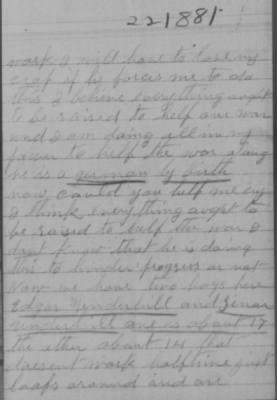 221881
work I will have to lose my
crop if he forces me to do
this I believe everything ought
to be raised to help our war
and I am doing all in my
power to help the war along
he is a german by birth
now could you help me any
I think everything ought to
be raised to help the war I
dont forget that he is doing
this to hinder progress or not
Now we have two boys here
Edgar Underhill and
Underhill one is about 17
the other about 14 that
doesent work half time just
loafs around and are